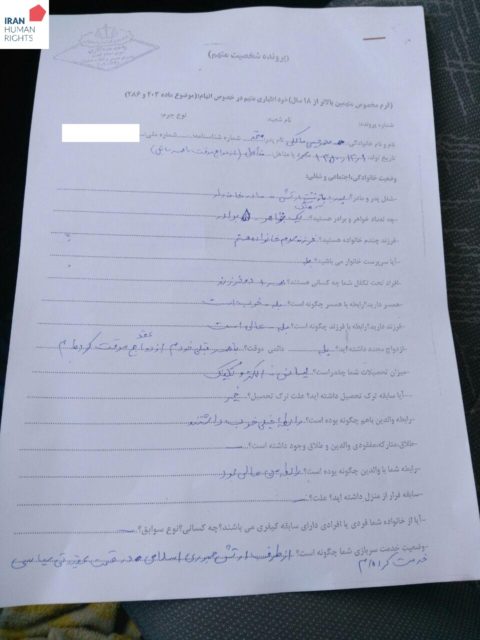 IRAN
HUMAN
RIGHTS
(پرونده شخصیت متهم)
(فرم مخصوص متهمین بالاتر از ۱۸ سال)
(موضوع ماده ۲۰۳ و ۲۸۶)
شماره پرونده: نام شعبه: نوع جرم:
نام و نام خانوادگی: نام پدر: شماره شناسنامه: شماره ملی:
تاریخ تولد: مجرد یا متاهل: متأهل
وضعیت خانوادگی، اجتماعی و شغلی:
-شغل پدر و مادر؟ پدر بازنشسته ارتش - مادر خانه‌دار
-چه تعداد خواهر و برادر هستید؟ یک خواهر برادر
-فرزند چندم خانواده هستید؟ فرزند خانواده هستم
-آیا سرپرست خانوار می باشید؟ بله
-افراد تحت تکفل شما چه کسانی هستند؟ همسر و دو فرزند
-همسر دارید؟رابطه با همسر چگونه است؟ بله - خوب است
-فرزند دارید؟رابطه با فرزند چگونه است؟ بله - عالی است
-ازدواج مجدد داشته اید؟ بله دائمی موقت؟ با همسر قبلی خودم ازدواج موقت کرده‌ام
-میزان تحصیلات شما چقدر است؟ لیسانس - الکترونیک
-آیا سابقه ترک تحصیل داشته اید؟ علت ترک تحصیل؟ خیر
-رابطه والدین باهم چگونه بوده است؟ رابطه خیلی خوب داشتند
-طلاق،متارکه،مفقودی والدین و طلاق وجود داشته است؟
-رابطه شما با والدین چگونه بوده است؟ رابطه عالی بود
-سابقه فرار از منزل داشته اید؟ علت؟
-آیا از خانواده شما فردی یا افرادی دارای سابقه کیفری می باشند؟چه کسانی؟نوع سوابق؟
-وضعیت خدمت سربازی شما چگونه است؟ از طرف ارتش جمهوری اسلامی در قسمت عقیدتی سیاسی
خدمت کرده‌ام